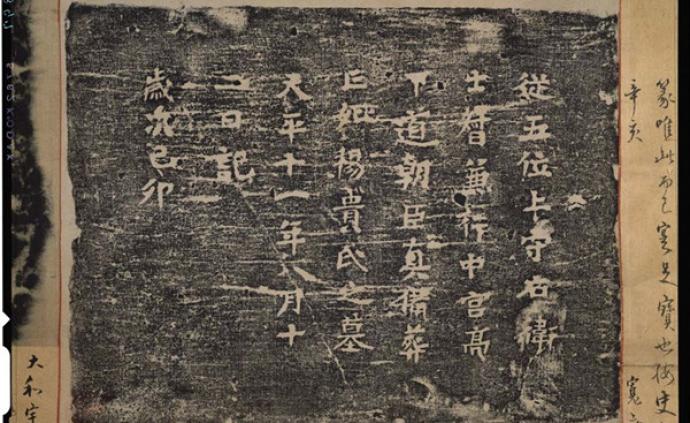 篆唯此而已寔是寶也按史
辛亥
寛
從五位上守右衛
士督兼行中宮亮
下道朝臣真備葬
亡妣楊貴氏之墓
天平十一年八月十
二日記
歳次己卯
大和宇